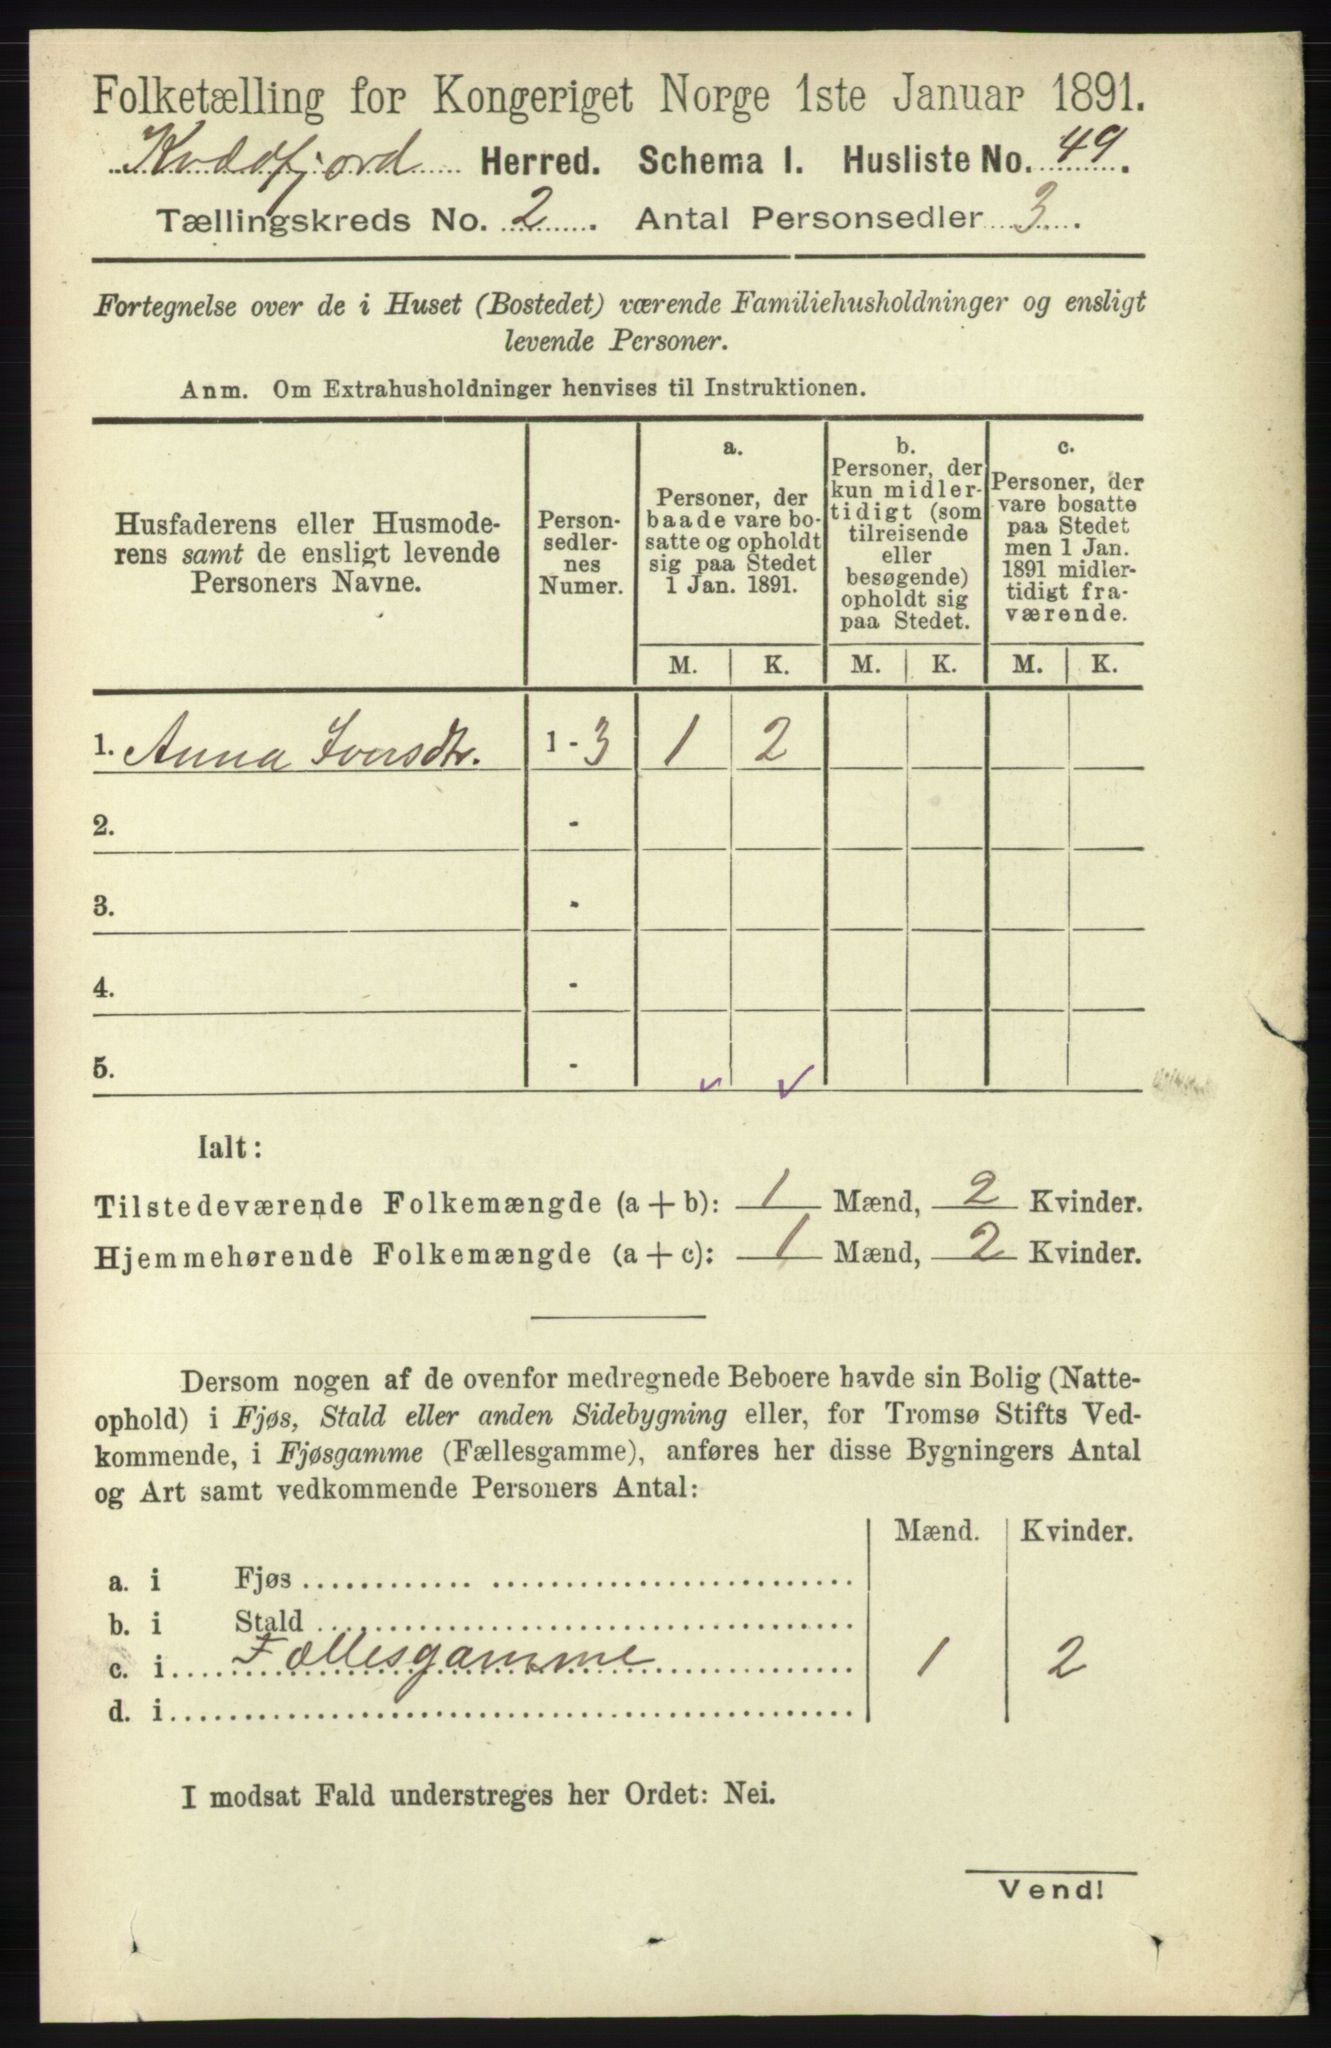 Folketælling for Kongeriget Norge 1ste Januar 1891.
Kvædfjord Herred. Schema 1. Husliste No. 49.
Tællingskreds No. 2. Antal Personsedler 3.
Fortegnelse over de i Huset (Bostedet) værende Familiehusholdninger og ensligt
levende Personer.
Anm. Om Extrahusholdninger henvises til Instruktionen.
Husfaderens eller Husmode-
rens samt de ensligt levende
Personers Navne.
Person-
sedler-
nes
Numer.
a.
Personer, der
baade vare bo-
satte og opholdt
sig paa Stedet
1 Jan. 1891.
b.
Personer, der
kun midler-
tidigt (som
tilreisende
eller
besøgende)
opholdt sig
paa Stedet.
c.
Personer, der
vare bosatte
paa Stedet
men 1 Jan.
1891 midler-
tidigt fra-
værende.
M. K. M. K. M. K.
1. Anna Iversdtr. 1 - 3 1 2
2. -
3. -
4. -
5. -
Ialt:
Tilstedeværende Folkemængde (a + b): 1 Mænd, 2 Kvinder.
Hjemmehørende Folkemængde (a + c): 1 Mænd, 2 Kvinder.
Dersom nogen af de ovenfor medregnede Beboere havde sin Bolig (Natte-
ophold) i Fjøs, Stald eller anden Sidebygning eller, for Tromsø Stifts Ved-
kommende, i Fjøsgamme (Fællesgamme), anføres her disse Bygningers Antal
og Art samt vedkommende Personers Antal:
Mænd. Kvinder.
a. i Fjøs
b. i Stald
c. i Fællesgamme 1 2
d. i
I modsat Fald understreges her Ordet: Nei.
Vend!